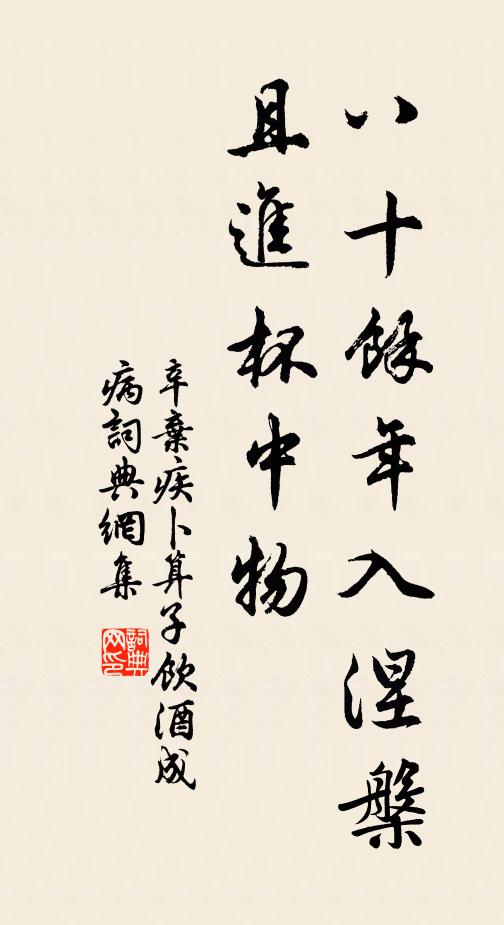 八十餘年入涅槃
且進杯中物
辛棄疾卜算子飲酒成
病詞典網集
詞典
网印